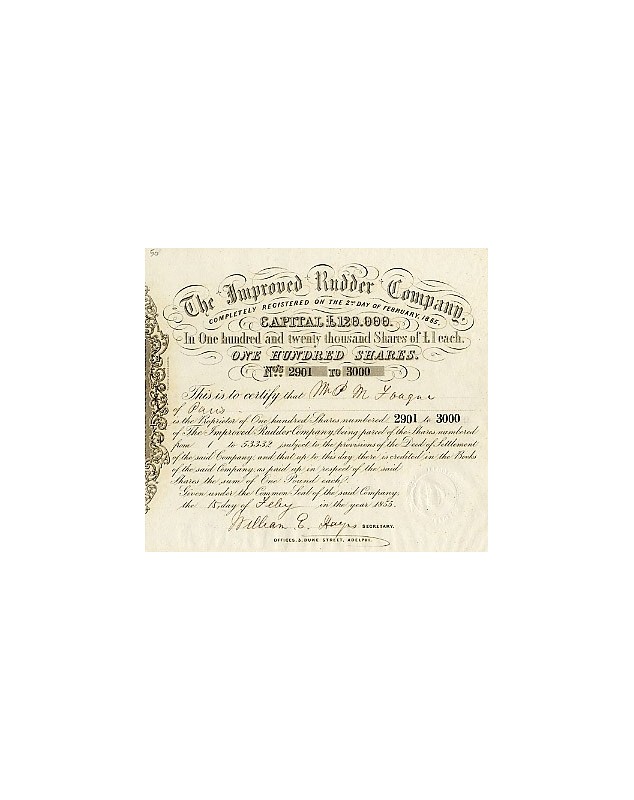 50
The Improved Rudder Company,
COMPLETELY REGISTERED ON THE 2ND DAY OF FEBRUARY, 1855.
CAPITAL £120.000.
In One hundred and twenty thousand Shares of £1 each.
ONE HUNDRED SHARES.
Nos. 2901 TO 3000
This is to certify that Mr P M
of Paris
is the Proprietor of One hundred Shares numbered 2901 to 3000
of The Improved Rudder Company, being parcel of the Shares numbered
from 1 to 53332 subject to the provisions of the Deed of Settlement
of the said Company, and that up to this day there is credited in the Books
of the said Company, as paid up in respect of the said
Shares the sum of One Pound each.
Given under the Common Seal of the said Company,
the 15 day of Feby in the year 1855.
William E. Hays SECRETARY.
OFFICES, 3, DUKE STREET, ADELPHI.